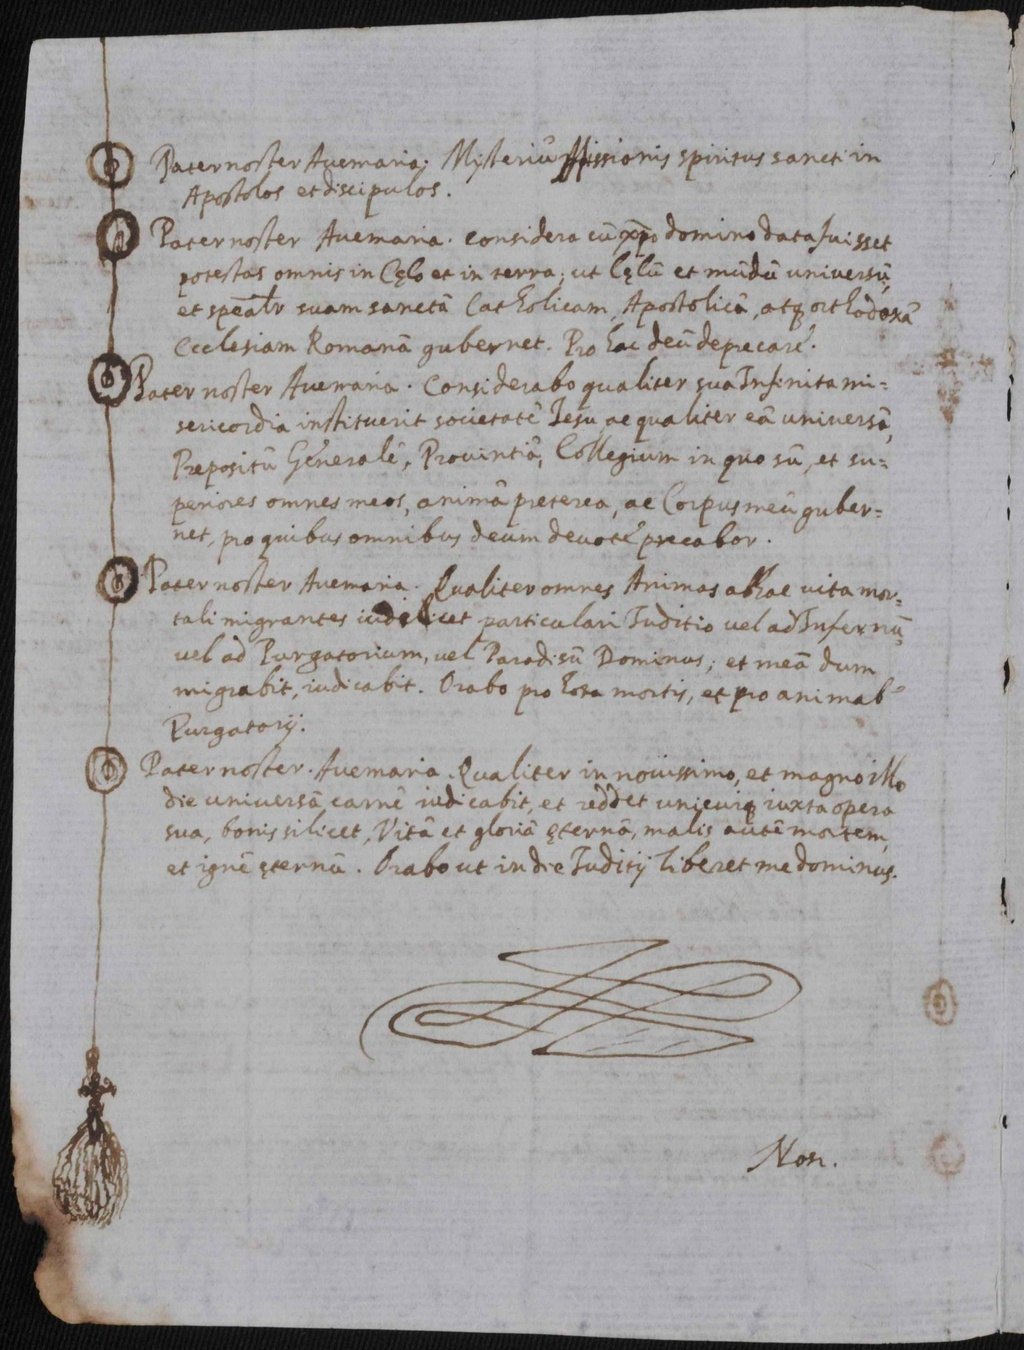 Pater noster Auemaria. Misteriū Missionis spiritus sancti in
Apostolos et discipulos.
Pater noster Auemaria. considera cū xp̄o domino data fuisset
potestas omnis in Cęlo et in terra, ut Cęlū et mūdū universū,
et spēalr suam sanctā Catholicam, Apostolicā, atq orthodoxā
Ecclesiam Romanā gubernet. Pro hac deū deprecare.
Pater noster Auemaria. Considerabo qualiter sua Infinita mi=
sericordia instituerit societatē Iesu ac qualiter eā universā,
Prepositū Generalē, Provintiā, Collegium in quo sū, et su=
periores omnes meos, animā preterea, ac Corpus meū guber=
net, pro quibus omnibus deum devotē precabor.
Pater noster Auemaria. Qualiter omnes Animas ab hac uita mor=
tali migrantes particulari Iuditio uel ad Infernū
uel ad Purgatorium, uel Paradisū Dominus; et meā dum
migrabit, iudicabit. Orabo pro hora mortis, et pro animab'
Purgatorij.
Pater noster. Auemaria. Qualiter in nouissimo, et magno illo
die universā carnē iudicabit, et reddet unicuiq iuxta opera
sua, bonis silicet, Vitā et gloriā ęternā, malis autē mortem,
et ignē ęternū. Orabo ut in die Iuditij liberet me dominus.
Non.